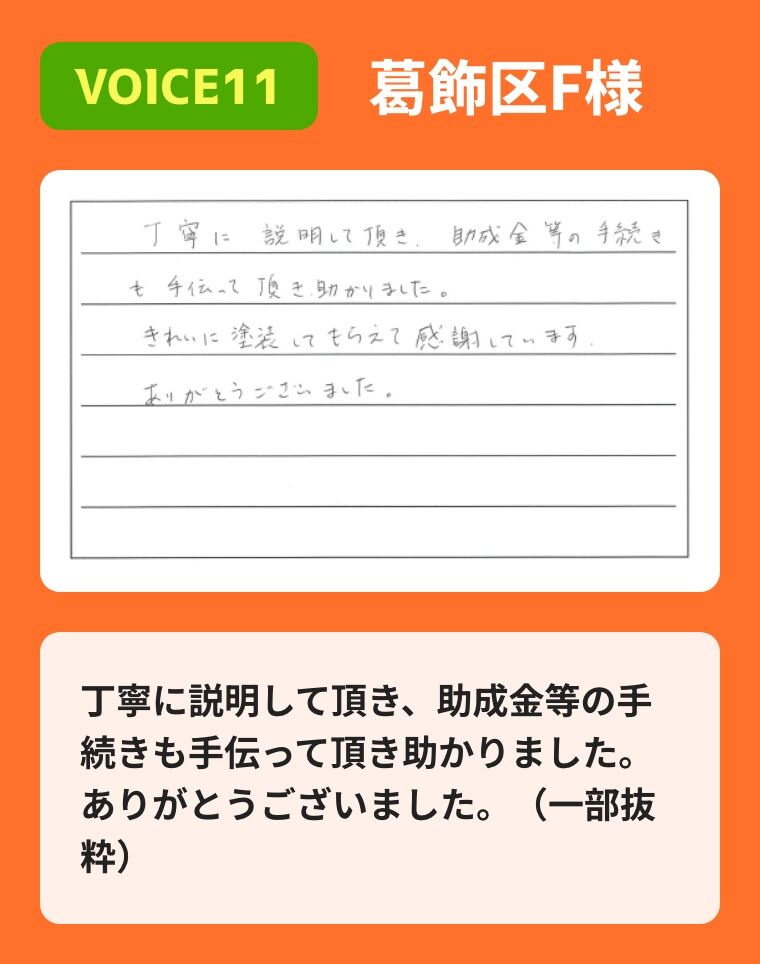 VOICE11
葛飾区F様
丁寧に説明して頂き、助成金等の手続き
も手伝って頂き助かりました。
きれいに塗装してもらえて感謝しています。
ありがとうございました。
丁寧に説明して頂き、助成金等の手
続きも手伝って頂き助かりました。
ありがとうございました。（一部抜
粋）